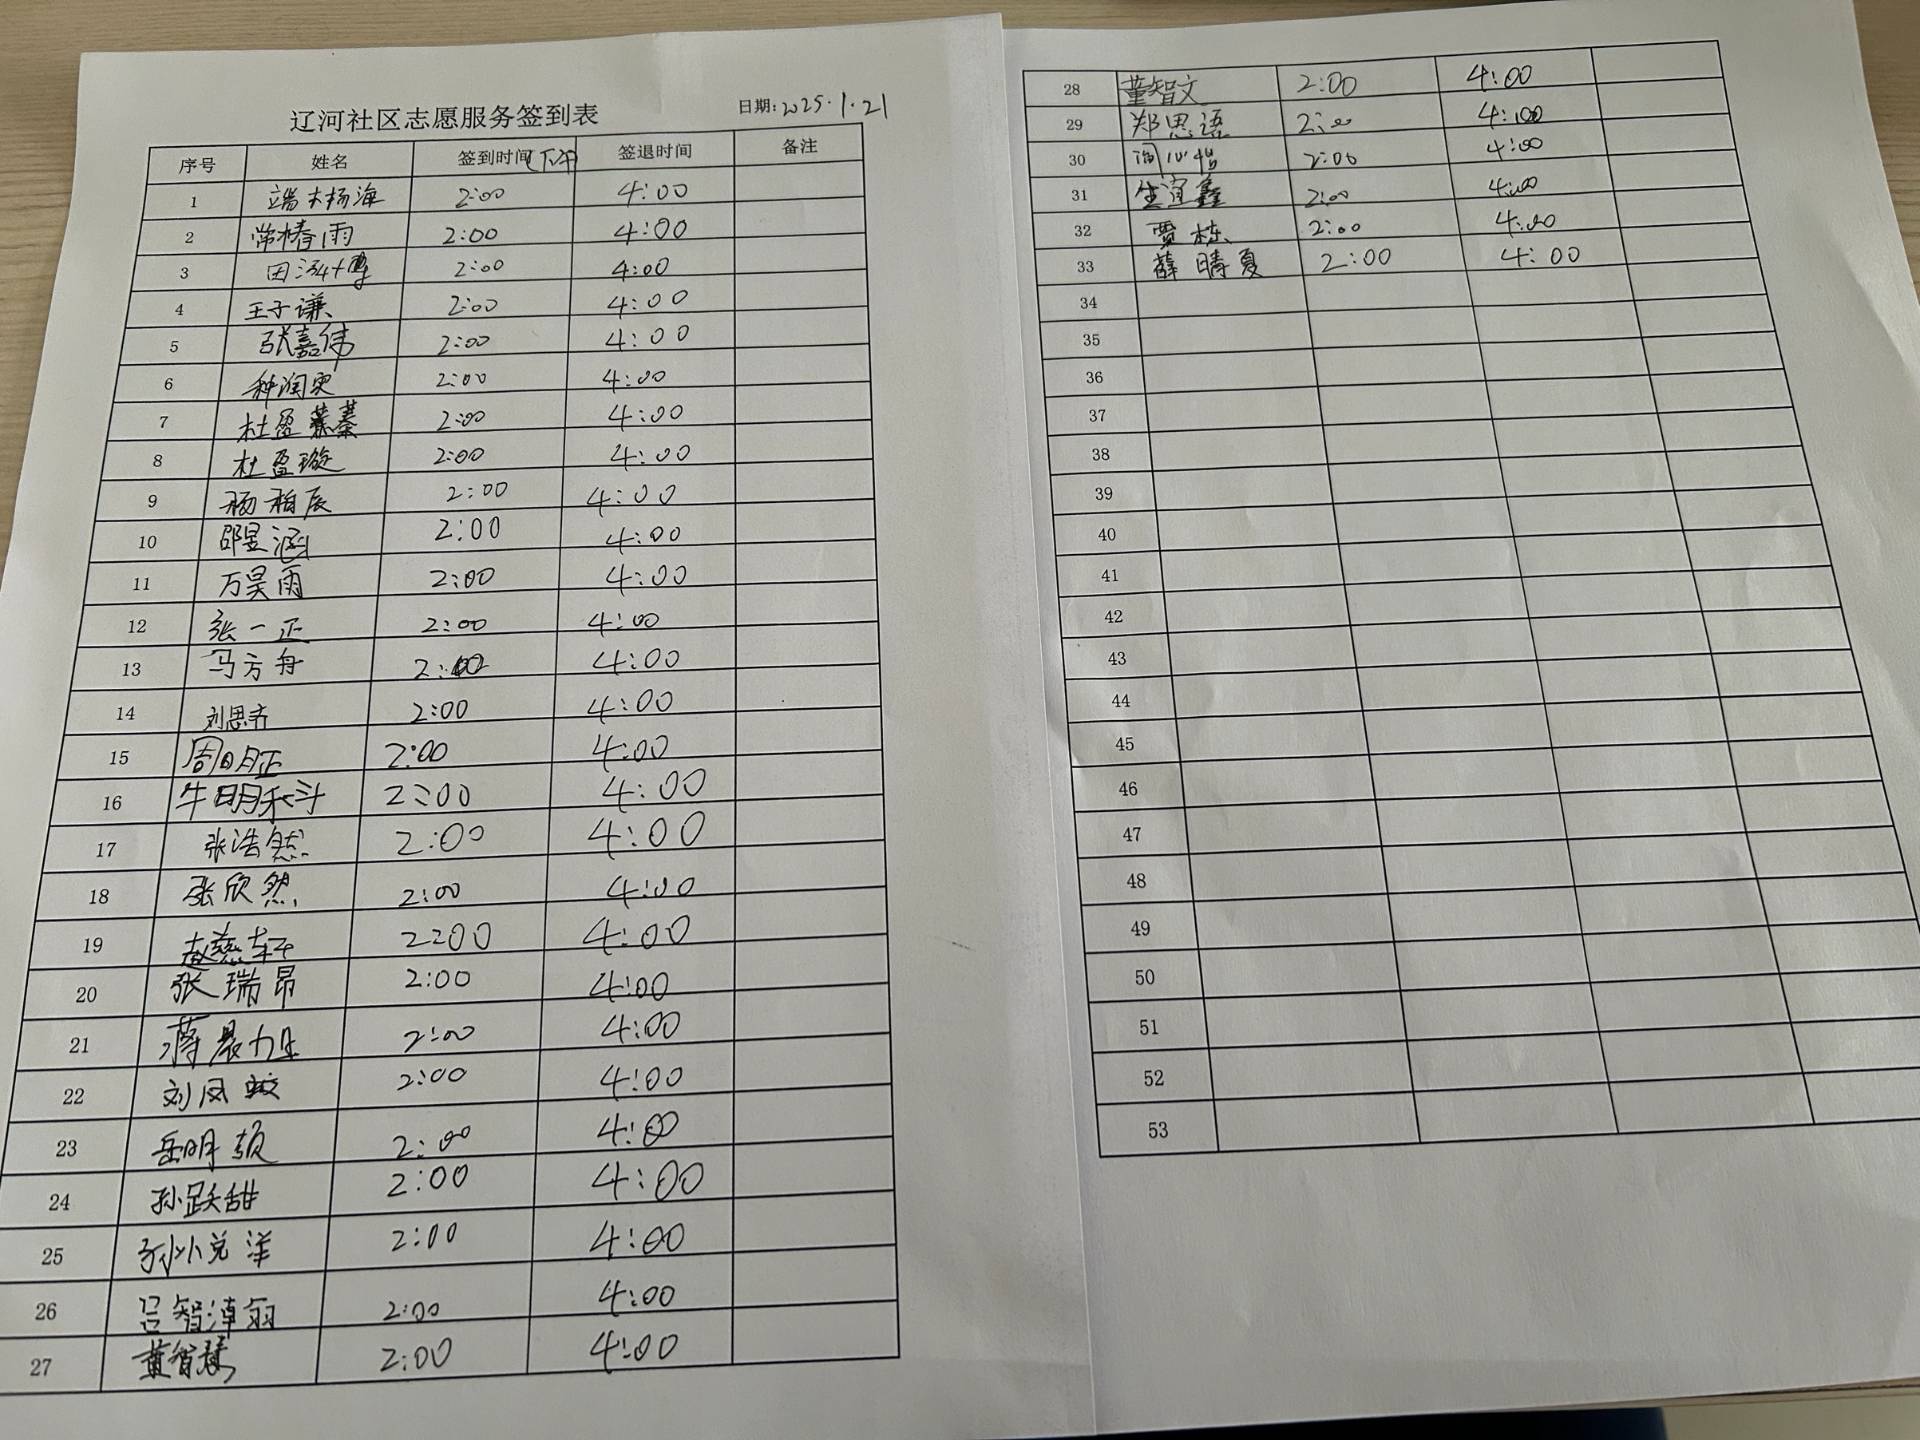 辽河社区志愿服务签到表 日期:2025.1.21
序号 姓名 签到时间(下午) 签退时间 备注
1 端木杨海 2:00 4:00
2 常椿雨 2:00 4:00
3 2:00 4:00
4 王子谦 2:00 4:00
5 张嘉伟 2:00 4:00
6 种润 2:00 4:00
7 杜盈蓁 2:00 4:00
8 杜盈璇 2:00 4:00
9 杨柏辰 2:00 4:00
10 邵昱涵 2:00 4:00
11 万昊雨 2:00 4:00
12 张一正 2:00 4:00
13 马方舟 2:00 4:00
14 刘思齐 2:00 4:00
15 周明正 2:00 4:00
16 牛明 2:00 4:00
17 张浩然 2:00 4:00
18 张欣然 2:00 4:00
19 赵慈轩 2:00 4:00
20 张瑞昂 2:00 4:00
21 蒋晨 2:00 4:00
22 刘凤蛟 2:00 4:00
23 岳明颉 2:00 4:00
24 孙跃甜 2:00 4:00
25 孙悦洋 2:00 4:00
26 吕智淖羽 2:00 4:00
27 董智慧 2:00 4:00
28 董智文 2:00 4:00
29 郑思语 2:00 4:00
30 2:00 4:00
31 生宜鑫 2:00 4:00
32 贾栋 2:00 4:00
33 薛晴夏 2:00 4:00
34
35
36
37
38
39
40
41
42
43
44
45
46
47
48
49
50
51
52
53